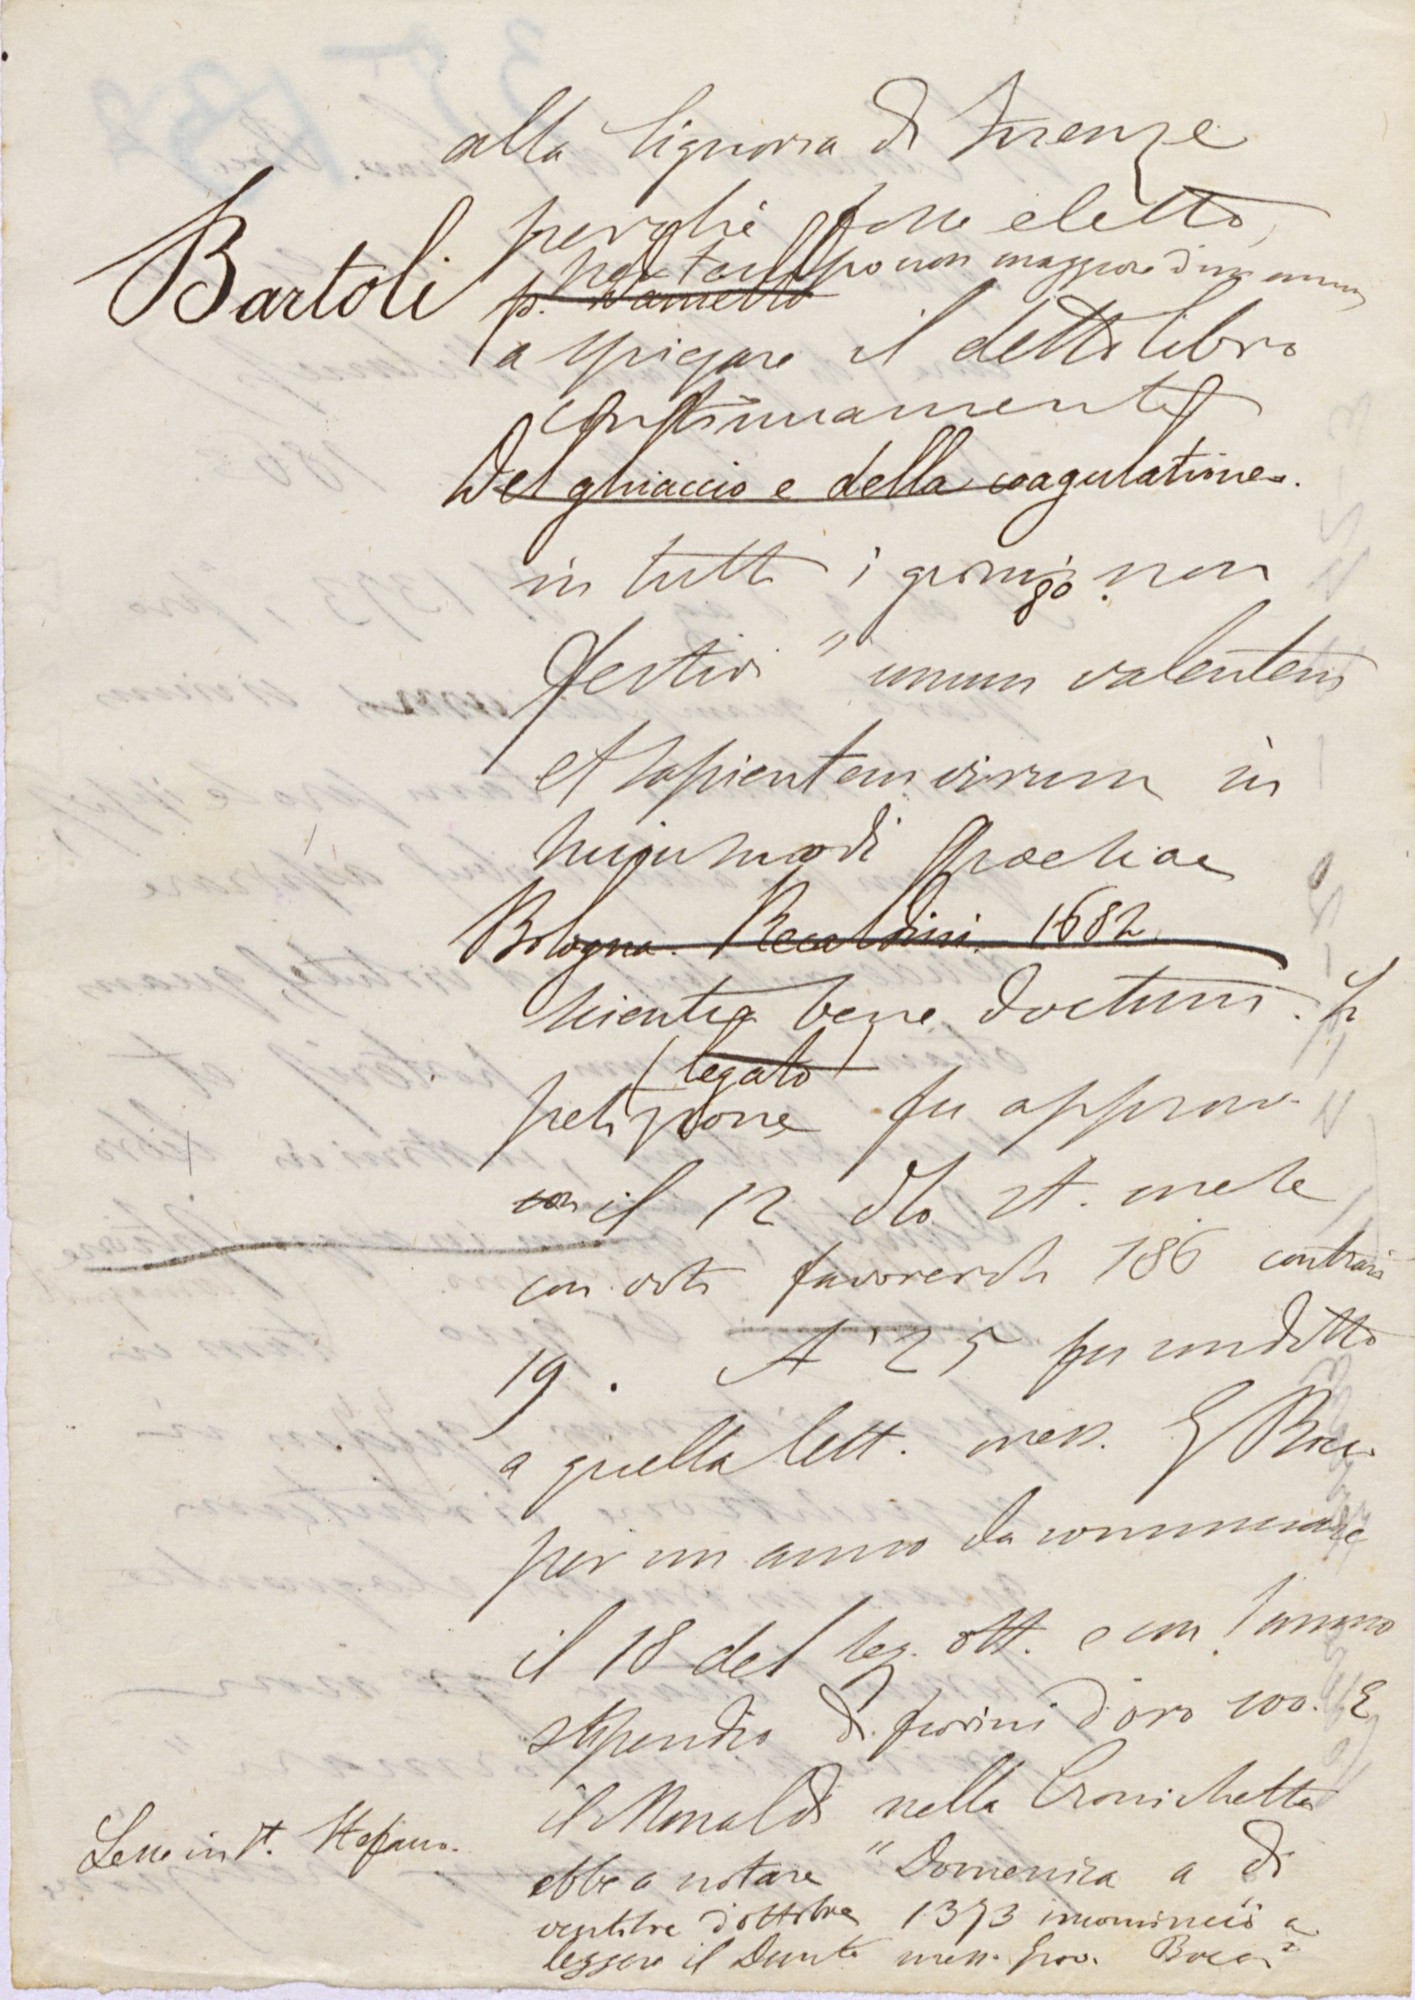 alla Signoria di Firenze
perché fosse eletto,
Bartoli
per tempo non maggiore di un anno,
p. Daniello
a spiegare il detto libro
continuamente
Del ghiaccio e della coagulatione.
in tutti i giorni non
festivi " unum valentem
et sapientem virum in
huiusmodi poesiae
Bologna. Recaldini. 1682.
scientia bene doctum. La
legato
petizione fu approva-
il 12 dto st. mese
con voti favorevoli 186 contrari
19. A' 25 fu condotto
a quella lett. mess. G Bocc.
per un anno da cominciare
il 18 del seg. ott. e con l'annuo
stipendio di fiorini d'oro 100. E
il Monaldi nella Cronichetta
Lesse in St. Stefano.
ebbe a notare "Domenica a dì
ventitre d'ottobre 1373 incominciò a
leggere il Dante mess. Giov. Bocca